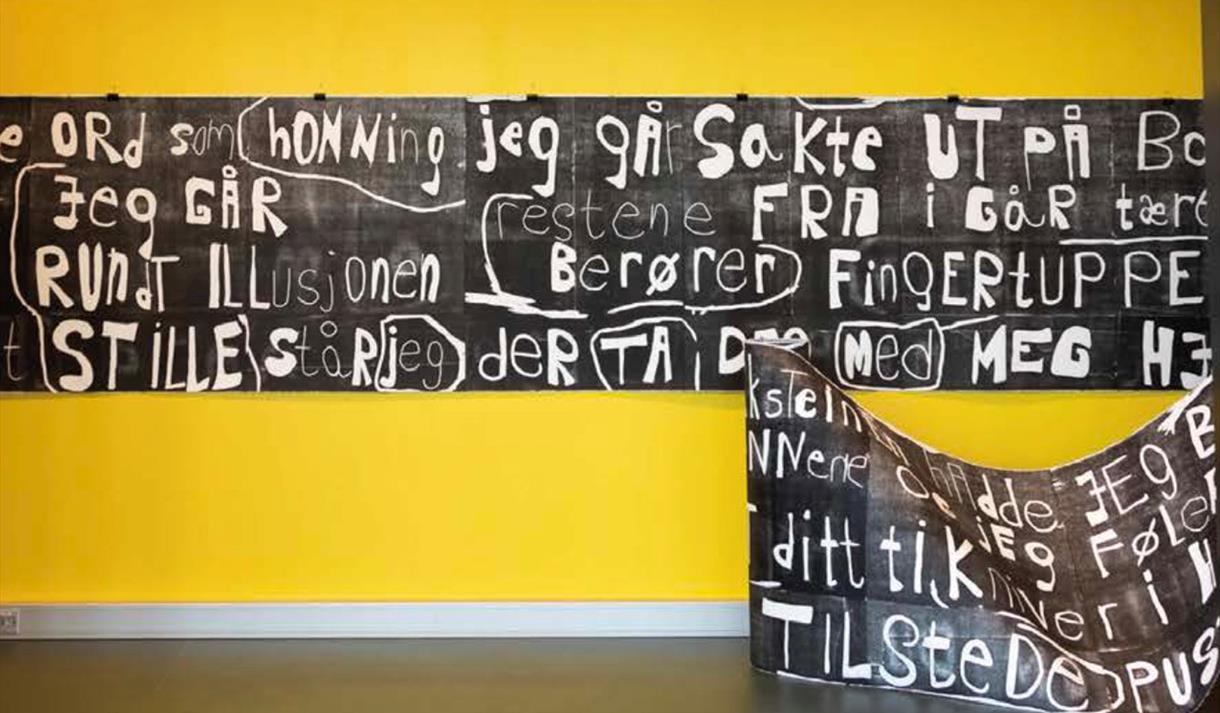 e ORd som hONNing jeg gÅr SaKte UT PÅ Bo
Jeg GÅR restene FRA i GåR tære
RUNdT ILLusjonen Berører FingERtUPPE
t STILLEståR jeg deR TA i Med MEG HJ
kstein
NNene hadde JEG B
jEg FØLe
ditt i H
TILSteDe PUS